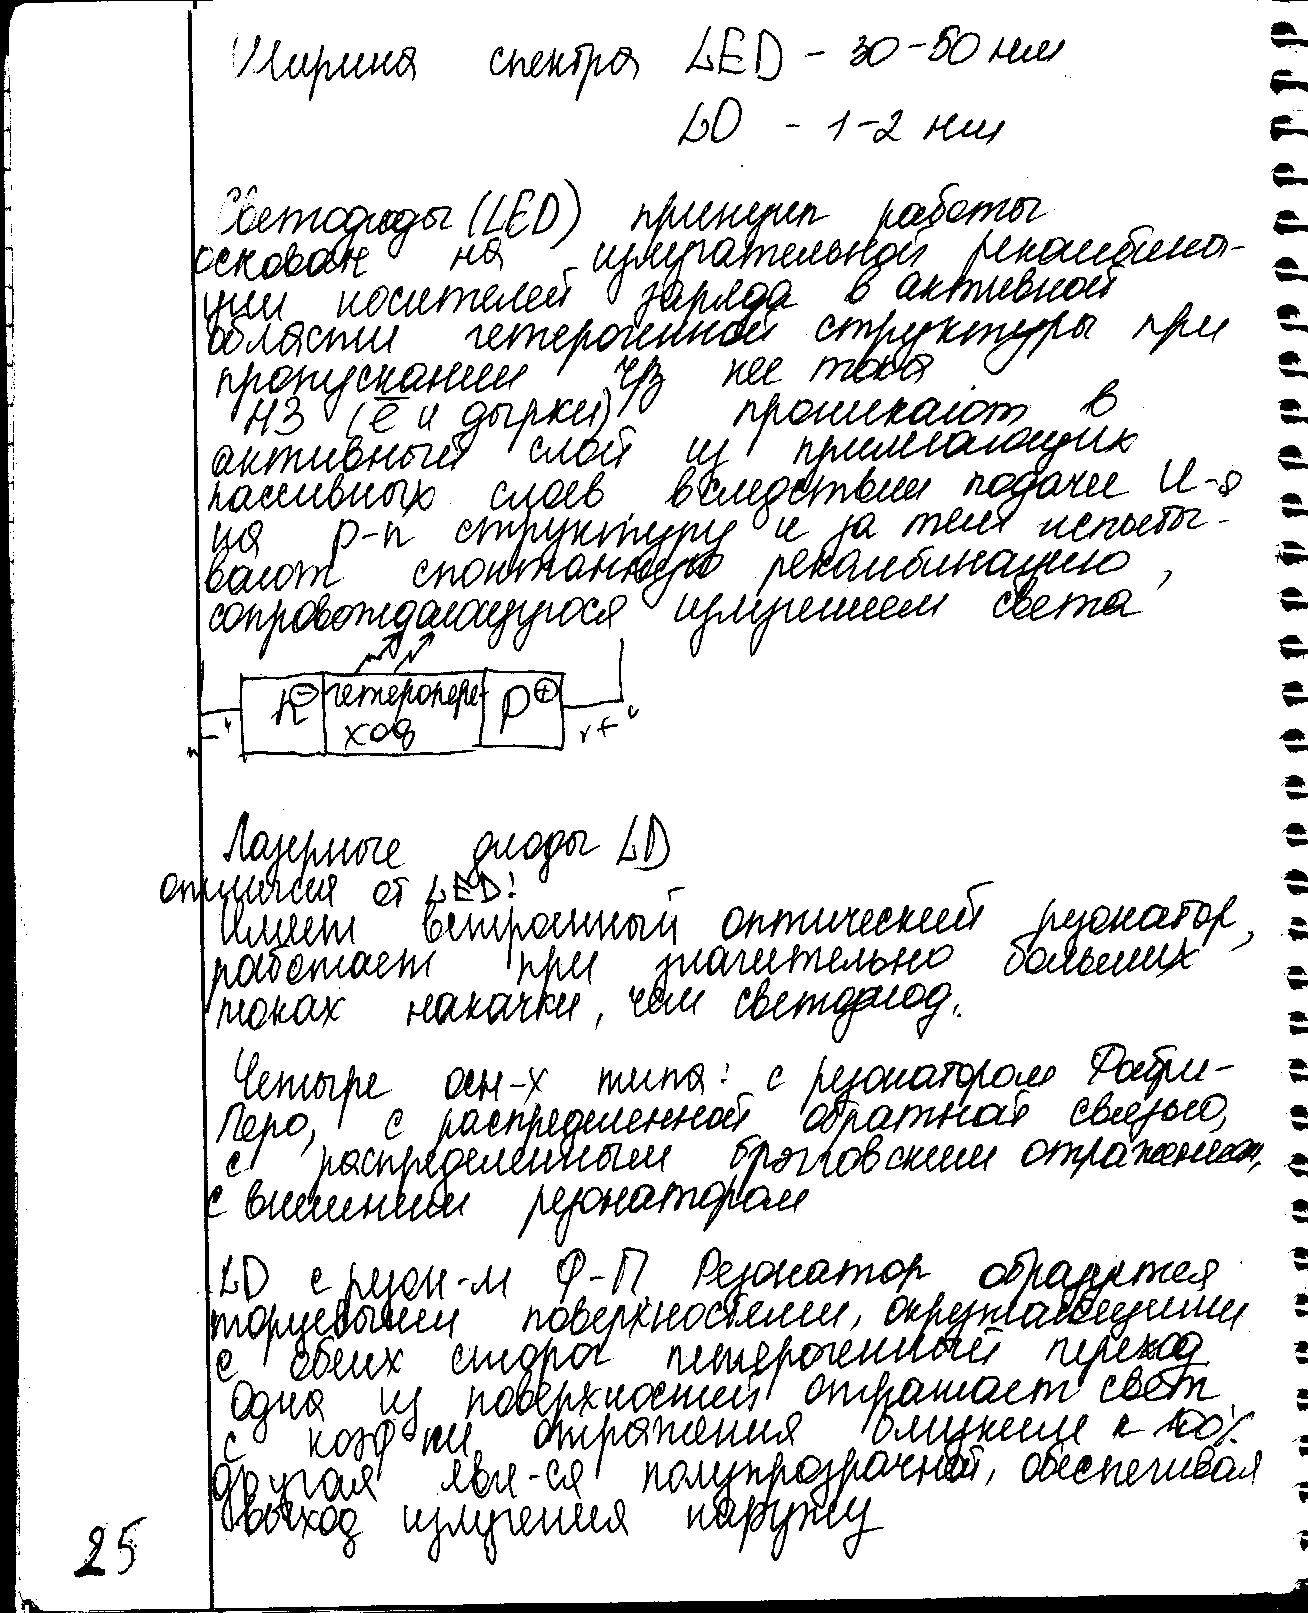 Ширина спектра LED - 30-50 нм
LD - 1-2 нм
Светодиоды (LED) принцип работы
основан на излучательной рекомбина-
ции носителей заряда в активной
области гетерогенной структуры при
пропускании ч/з нее тока
НЗ (ē и дырки) проникают в
активный слой из прилегающих
пассивных слоев вследствии подачи И-я
на p-n структуру и за тем испыты-
вают спонтанную рекомбинацию,
сопровождающуюся излучением света
n ⊖ гетеропере- p ⊕
ход
"-" "+"
Лазерные диоды LD
отличия от LED:
имеет встроенный оптический резонатор,
работает при значительно больших
токах накачки, чем светодиод.
Четыре осн-х типа: с резонатором Фабри-
Перо, с распределенной обратной связью,
с распределенным брэгговским отражением,
с внешним резонатором
LD с резон-м Ф-П. Резонатор образуется
торцевыми поверхностями, окружающими
с обеих сторон гетерогенный переход
Одна из поверхностей отражает свет
с коэф-ми отражения близким к 100%
другая явл-ся полупрозрачной, обеспечивая
выход излучения наружу
25